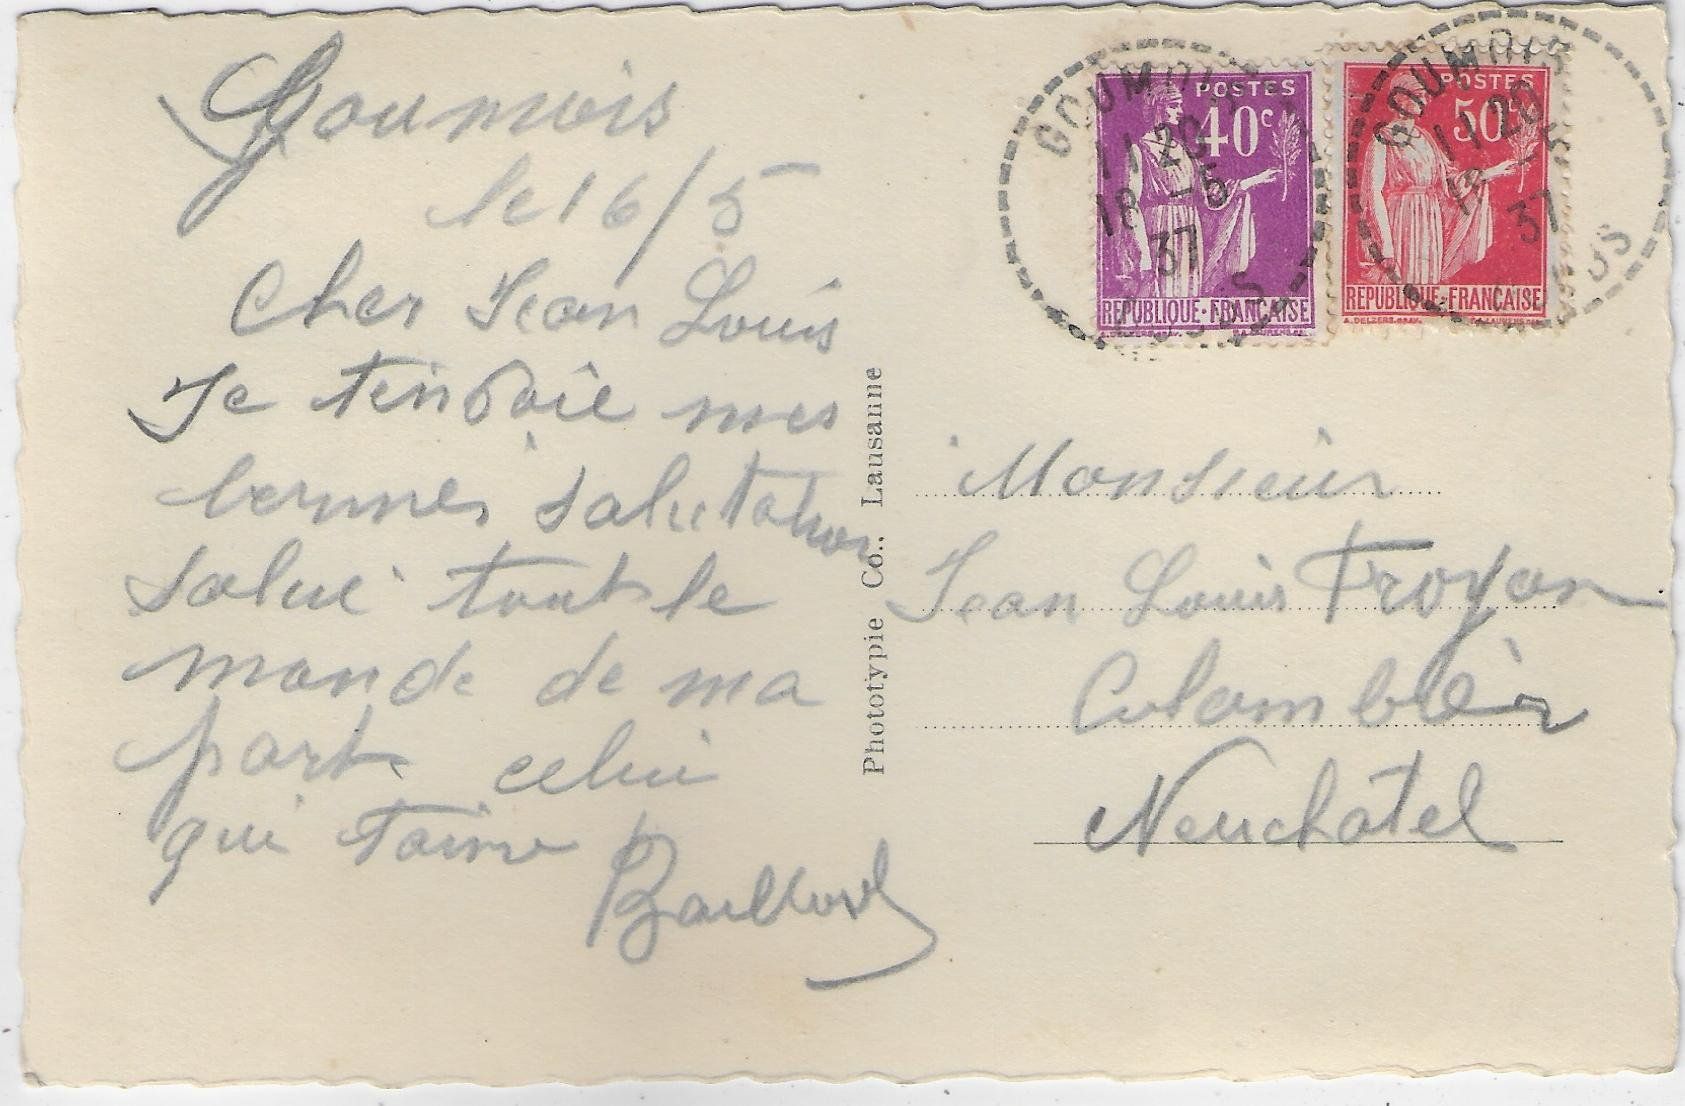 Goumois
le 16/5
Cher Jean Louis
Je tenvoie mes
bonnes salutation
salue tout le
monde de ma
part celui
qui taime
Phototypie Co., Lausanne
GOUMOIS
11 20
18 -5
37
POSTES
40c
REPUBLIQUE·FRANÇAISE
GOUMOIS
11 20
18 -5
37
POSTES
50c
REPUBLIQUE·FRANÇAISE
Monsieur
Jean Louis Troyon
Colombier
Neuchatel